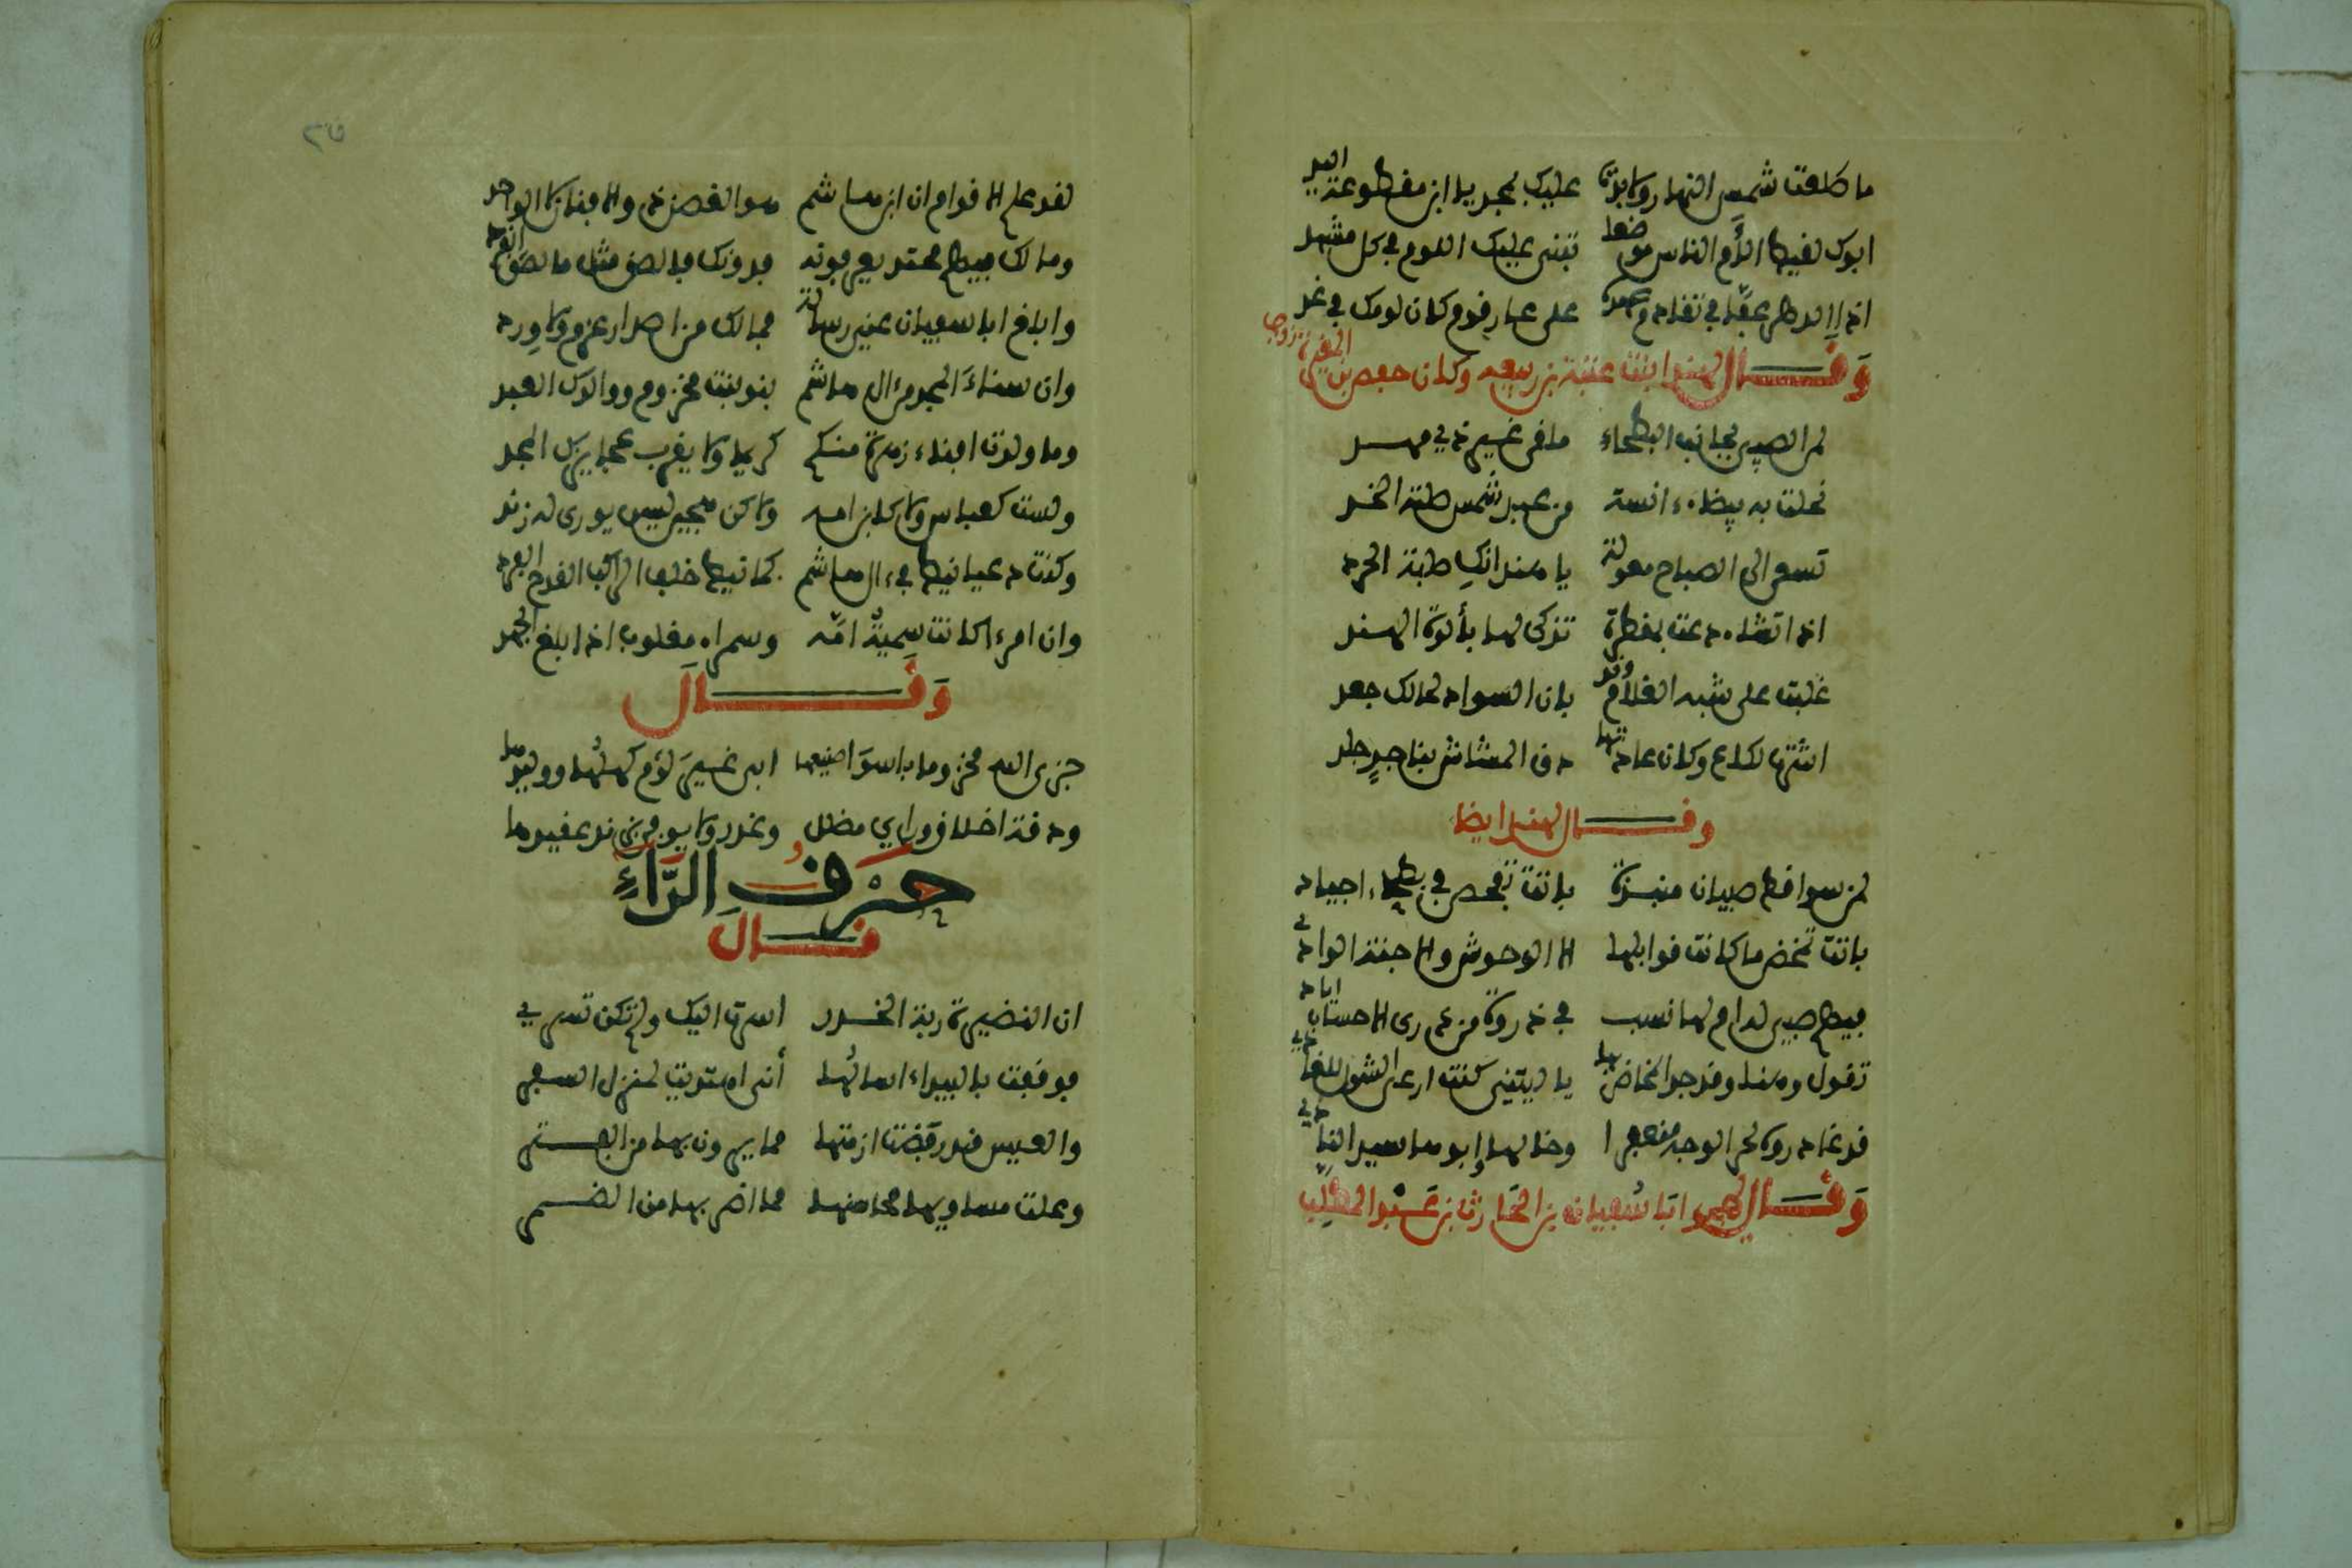 ما طلعت شمس النهار ولا بدت عليك بمجد يا ابن مقطوعة اليد
ابوك لقيط الأم الناس موضعا تبنى عليك اللوم في كل مشهد
على عار قوم كان لومك في غد
وقال لهند ابنت عتبة بن ربيعه وكان حفص بن المغيرة تزوجها
لمن الصبي بجانب البطحاء ملقى غير ذي مهد
نجلت به بيضاء انسة من عبد شمس صلتة الخد
تسعى الى الصباح معولة يا هند انك صلبة الحرد
اذا تشاء دعت بمقطرة تذكى لها بألوة الهند
غلبت على شبه الغلام وقد بان السواد لحالك جعد
اشرت لكاع وكان عادتها دق المشاش بناجد جلد
وقال لهند ايضا
لمن سواقط صبيان منبذة باتت تفحص في بطحاء اجياد
باتت تمخض ما كانت قوابلها الا الوحوش والا جنة الوادي
فيهم صبي له ام لها نسب في ذروة من ذرى الاحساب اياد
تقول وهنا وقد جد المخاض بها يا ليتني كنت ارعى الشول للغادي
قد غادروه لحر الوجه منعفرا وخالها وابوها سيد النادي
وقال يهجو ابا سفيان بن الحارث بن عبد المطلب
لقد علم الاقوام ان ابن هاشم هو الغصن ذو الافنان لا الواحد
وما لك فيهم محتد يعرفونه فدونك فالصق مثل ما لصق القرد
وابلغ ابا سفيان عني رسالة فمالك من اصدار عزم ولا ورد
وان سناء المجد من ال هاشم بنو بنت مخزوم ووالدك العبد
وما ولدت افناء زهرة منكم كريما ولا يقرب عجايزك المجد
ولست كعباس ولا كابن امه ولاكن هجين ليس يورى له زند
وكنت دعيا نيط في ءال هاشم كما نيط خلف الراكب القدح الفرد
وان امرءا كانت سمية امه وسمراء مغلوب اذا بلغ الجهد
وقال
جزى الله مخزوما باسوا صنيعها ابى غير لؤم كهلها ووليدها
ودقة اخلاق وراي مضلل وغدر ولا يوفى بند عقيدها
حرف الراء
قال
ان النضيرة ربة الخدر اسرت اليك ولم تكن تسري
فوقفت بالبيداء اسالها أنى اهتديت لمنزل السفر
والعيس قد رفضت ازمتها مما يرون بها من الفتر
وعلت مساويها محاسنها مما اضر بها من الضمر